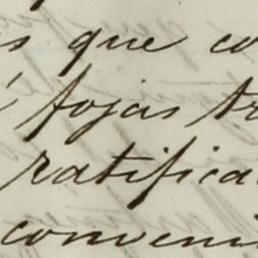 s que co
fojas tr
ratifica
conveni